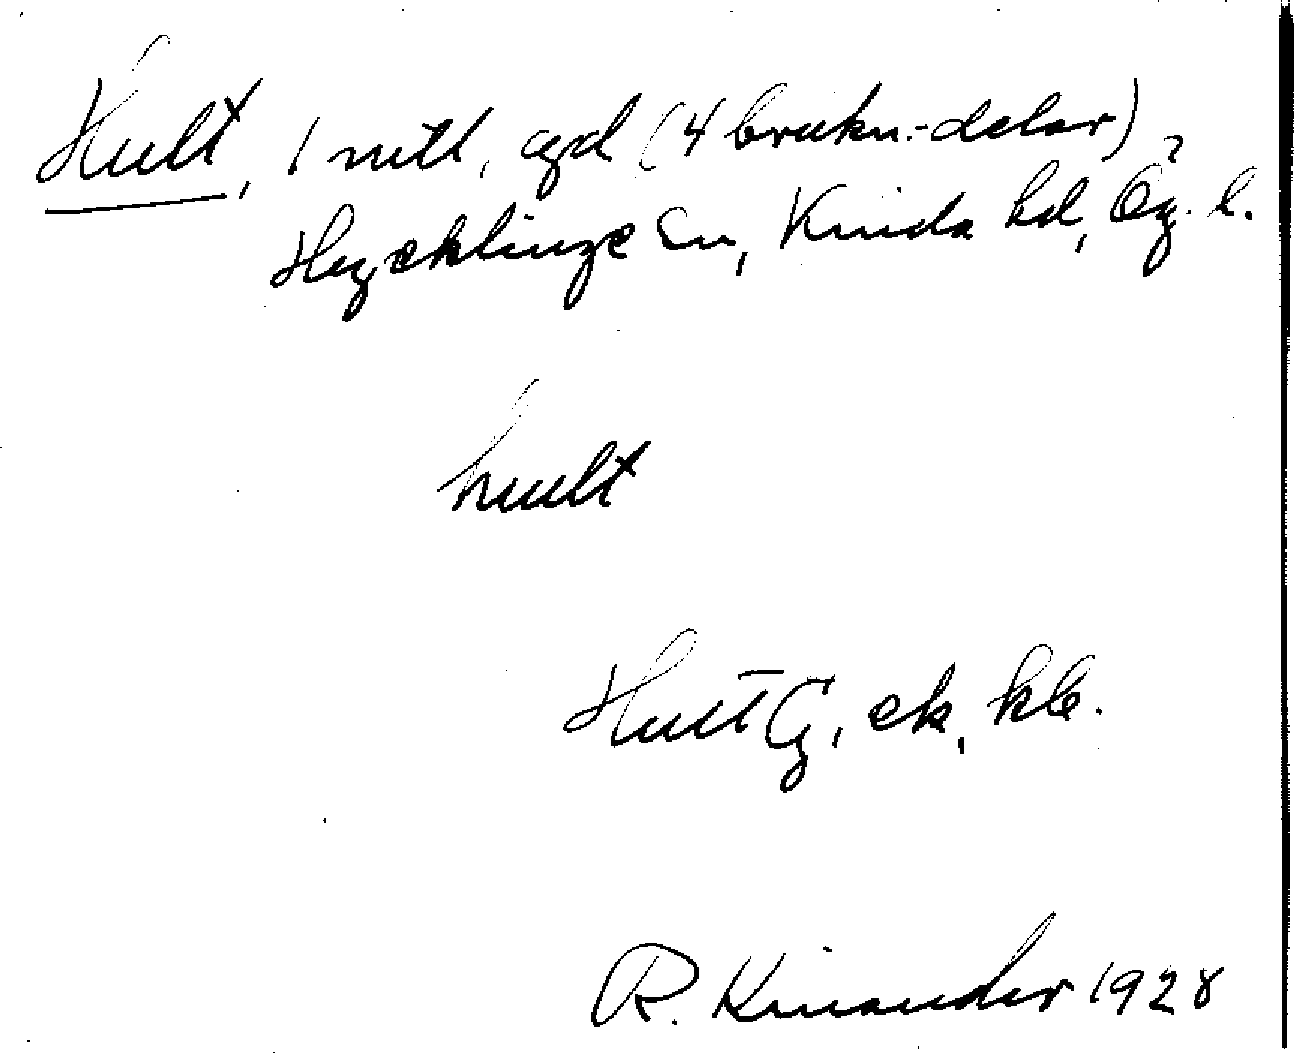 Hult, 1 mtl, gd (4 brukn.-delar),
Hägeklinge Sn, Kinda hd, Ög. l.
hult
Hult G, ek, kb.
R. Kinander 1928